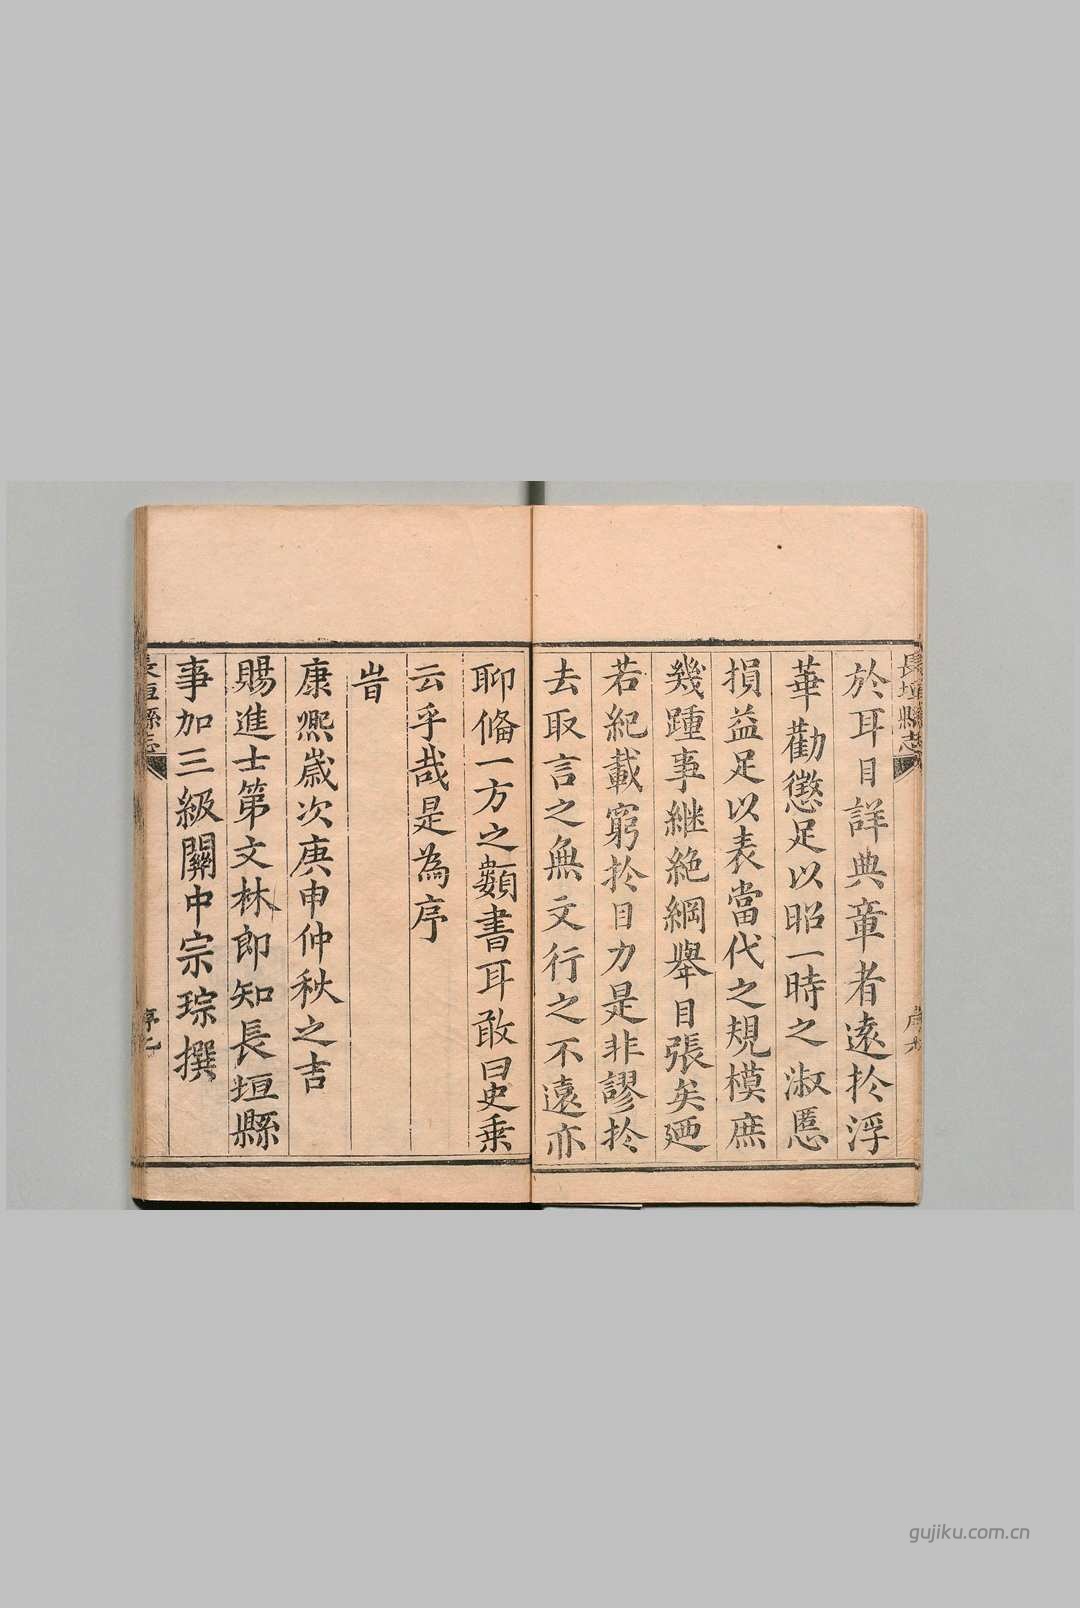 長垣縣志
於耳目詳典章者遠扵浮
華勸懲足以昭一時之淑慝
損益足以表當代之規模庶
幾踵事継絶綱舉目張矣廼
若紀載窮扵目力是非謬扵
去取言之無文行之不遠亦
聊俻一方之纇書耳敢曰史乗
云乎哉是為序
旹
康熈歲次庚申仲秋之吉
賜進士第文林郎知長垣縣
事加三級關中宗琮撰
長垣縣志
gujiku.com.cn